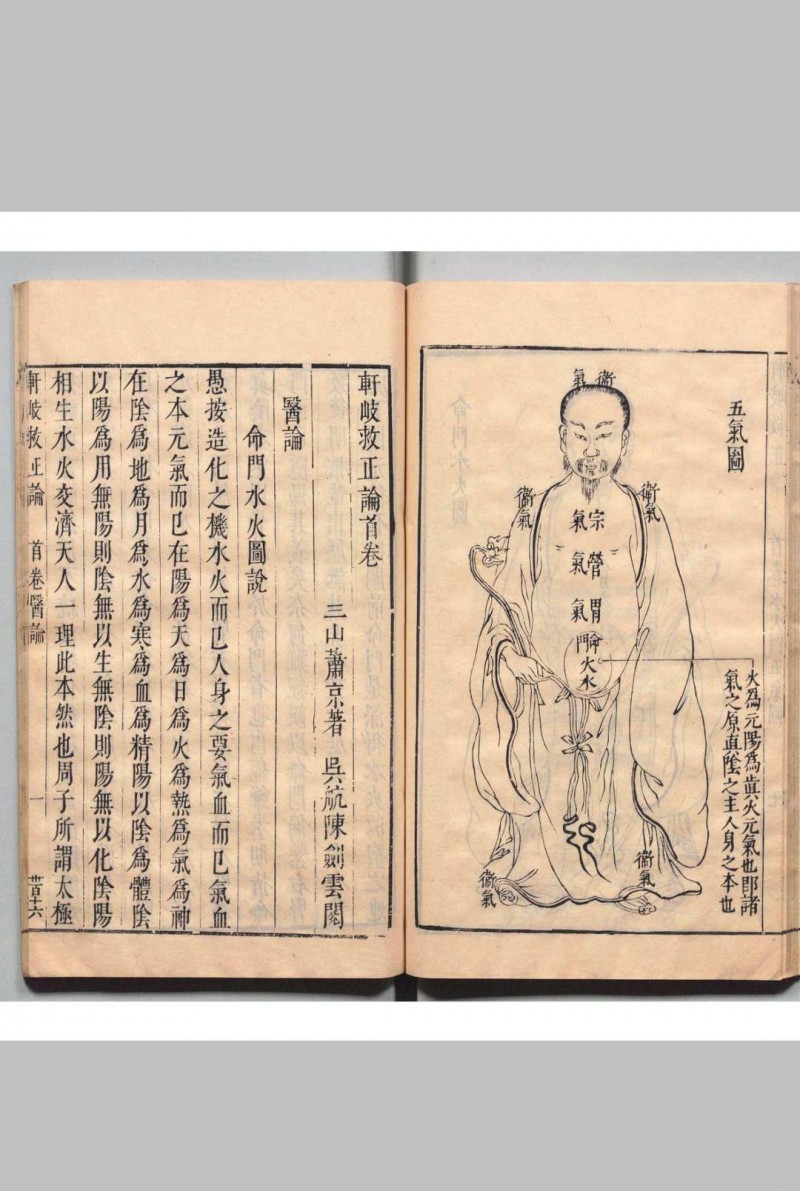 五氣圖
衛氣
衛氣
衛氣
宗氣
營氣
胃氣
命門
火
水
火爲元陽爲眞火元氣也即諸
氣之原眞陰之主人身之本也
衛氣
衛氣
軒岐救正論首卷
三山蕭京著 吳航陳劍雲閱
醫論
命門水火圖說
愚按造化之機水火而已人身之要氣血而已氣血
之本元氣而已在陽爲天爲日爲火爲熱爲氣爲神
在陰爲地爲月爲水爲寒爲血爲精陽以陰爲體陰
以陽爲用無陽則陰無以生無陰則陽無以化陰陽
相生水火交濟天人一理此本然也周子所謂太極
軒岐救正論 首卷醫論 一